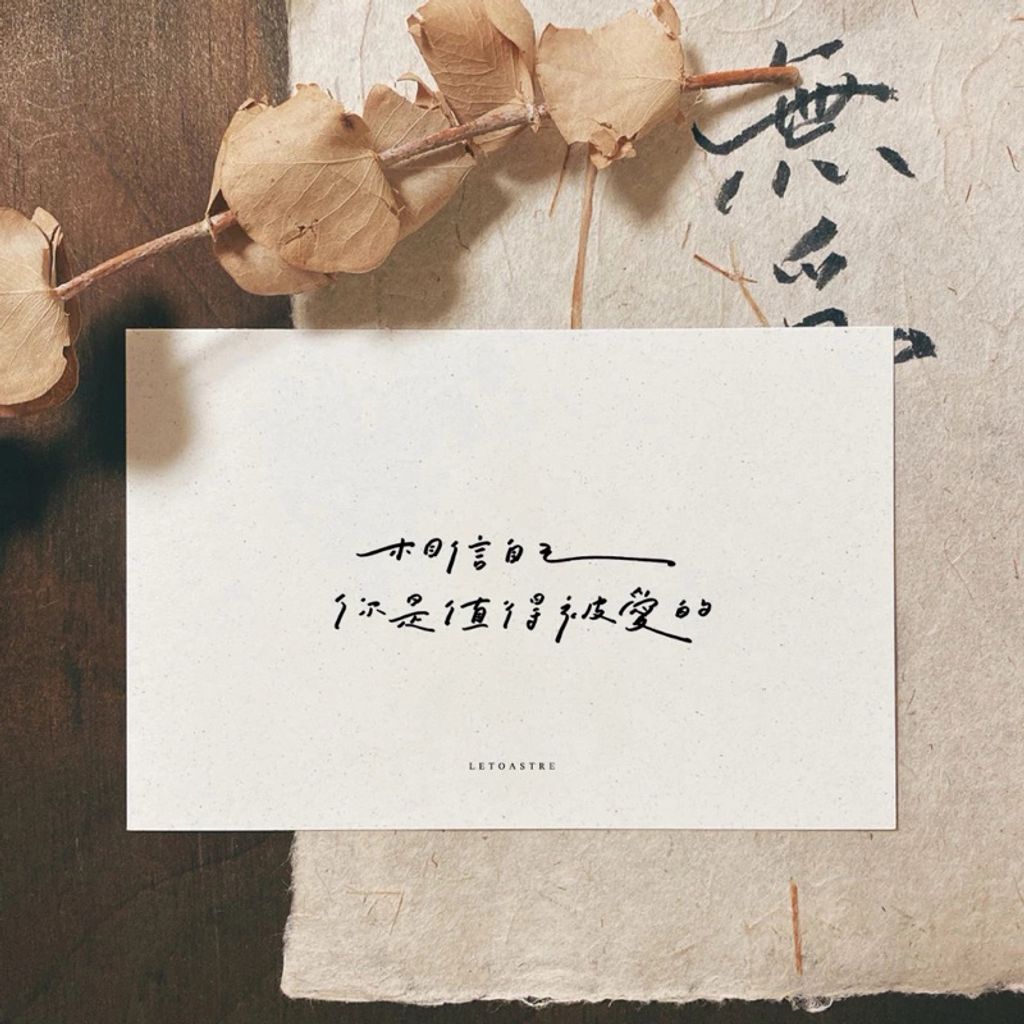 無
相信自己
你是值得被愛的
LETOASTRE